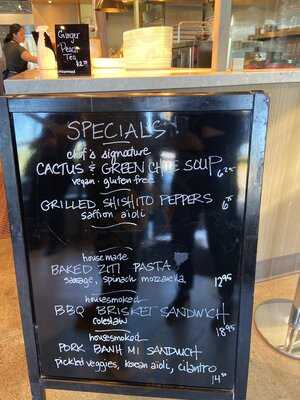 Ginger
Peach
Tea
SPECIALS
chef's signature
CACTUS & GREEN CHILE SOUP 6.25
vegan · gluten free
GRILLED SHISHITO PEPPERS
saffron aioli
housemade
BAKED ZITI PASTA
sausage, spinach mozzarella 12.95
housesmoked
BBQ BRISKET SANDWICH
coleslaw 18.95
housesmoked
PORK BANH MI SANDWICH
pickled veggies, korean aioli, cilantro